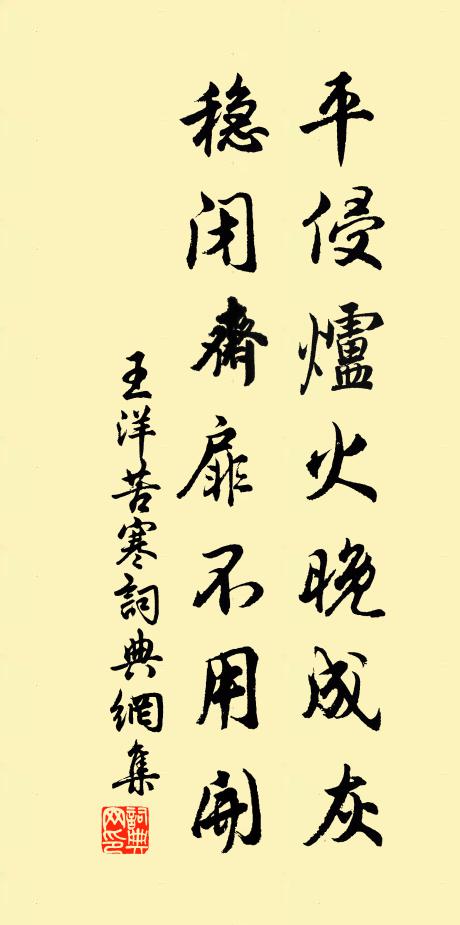 平侵爐火晚成灰
穏闭齋扉不用開
王洋苦寒詞典網集
詞典网印